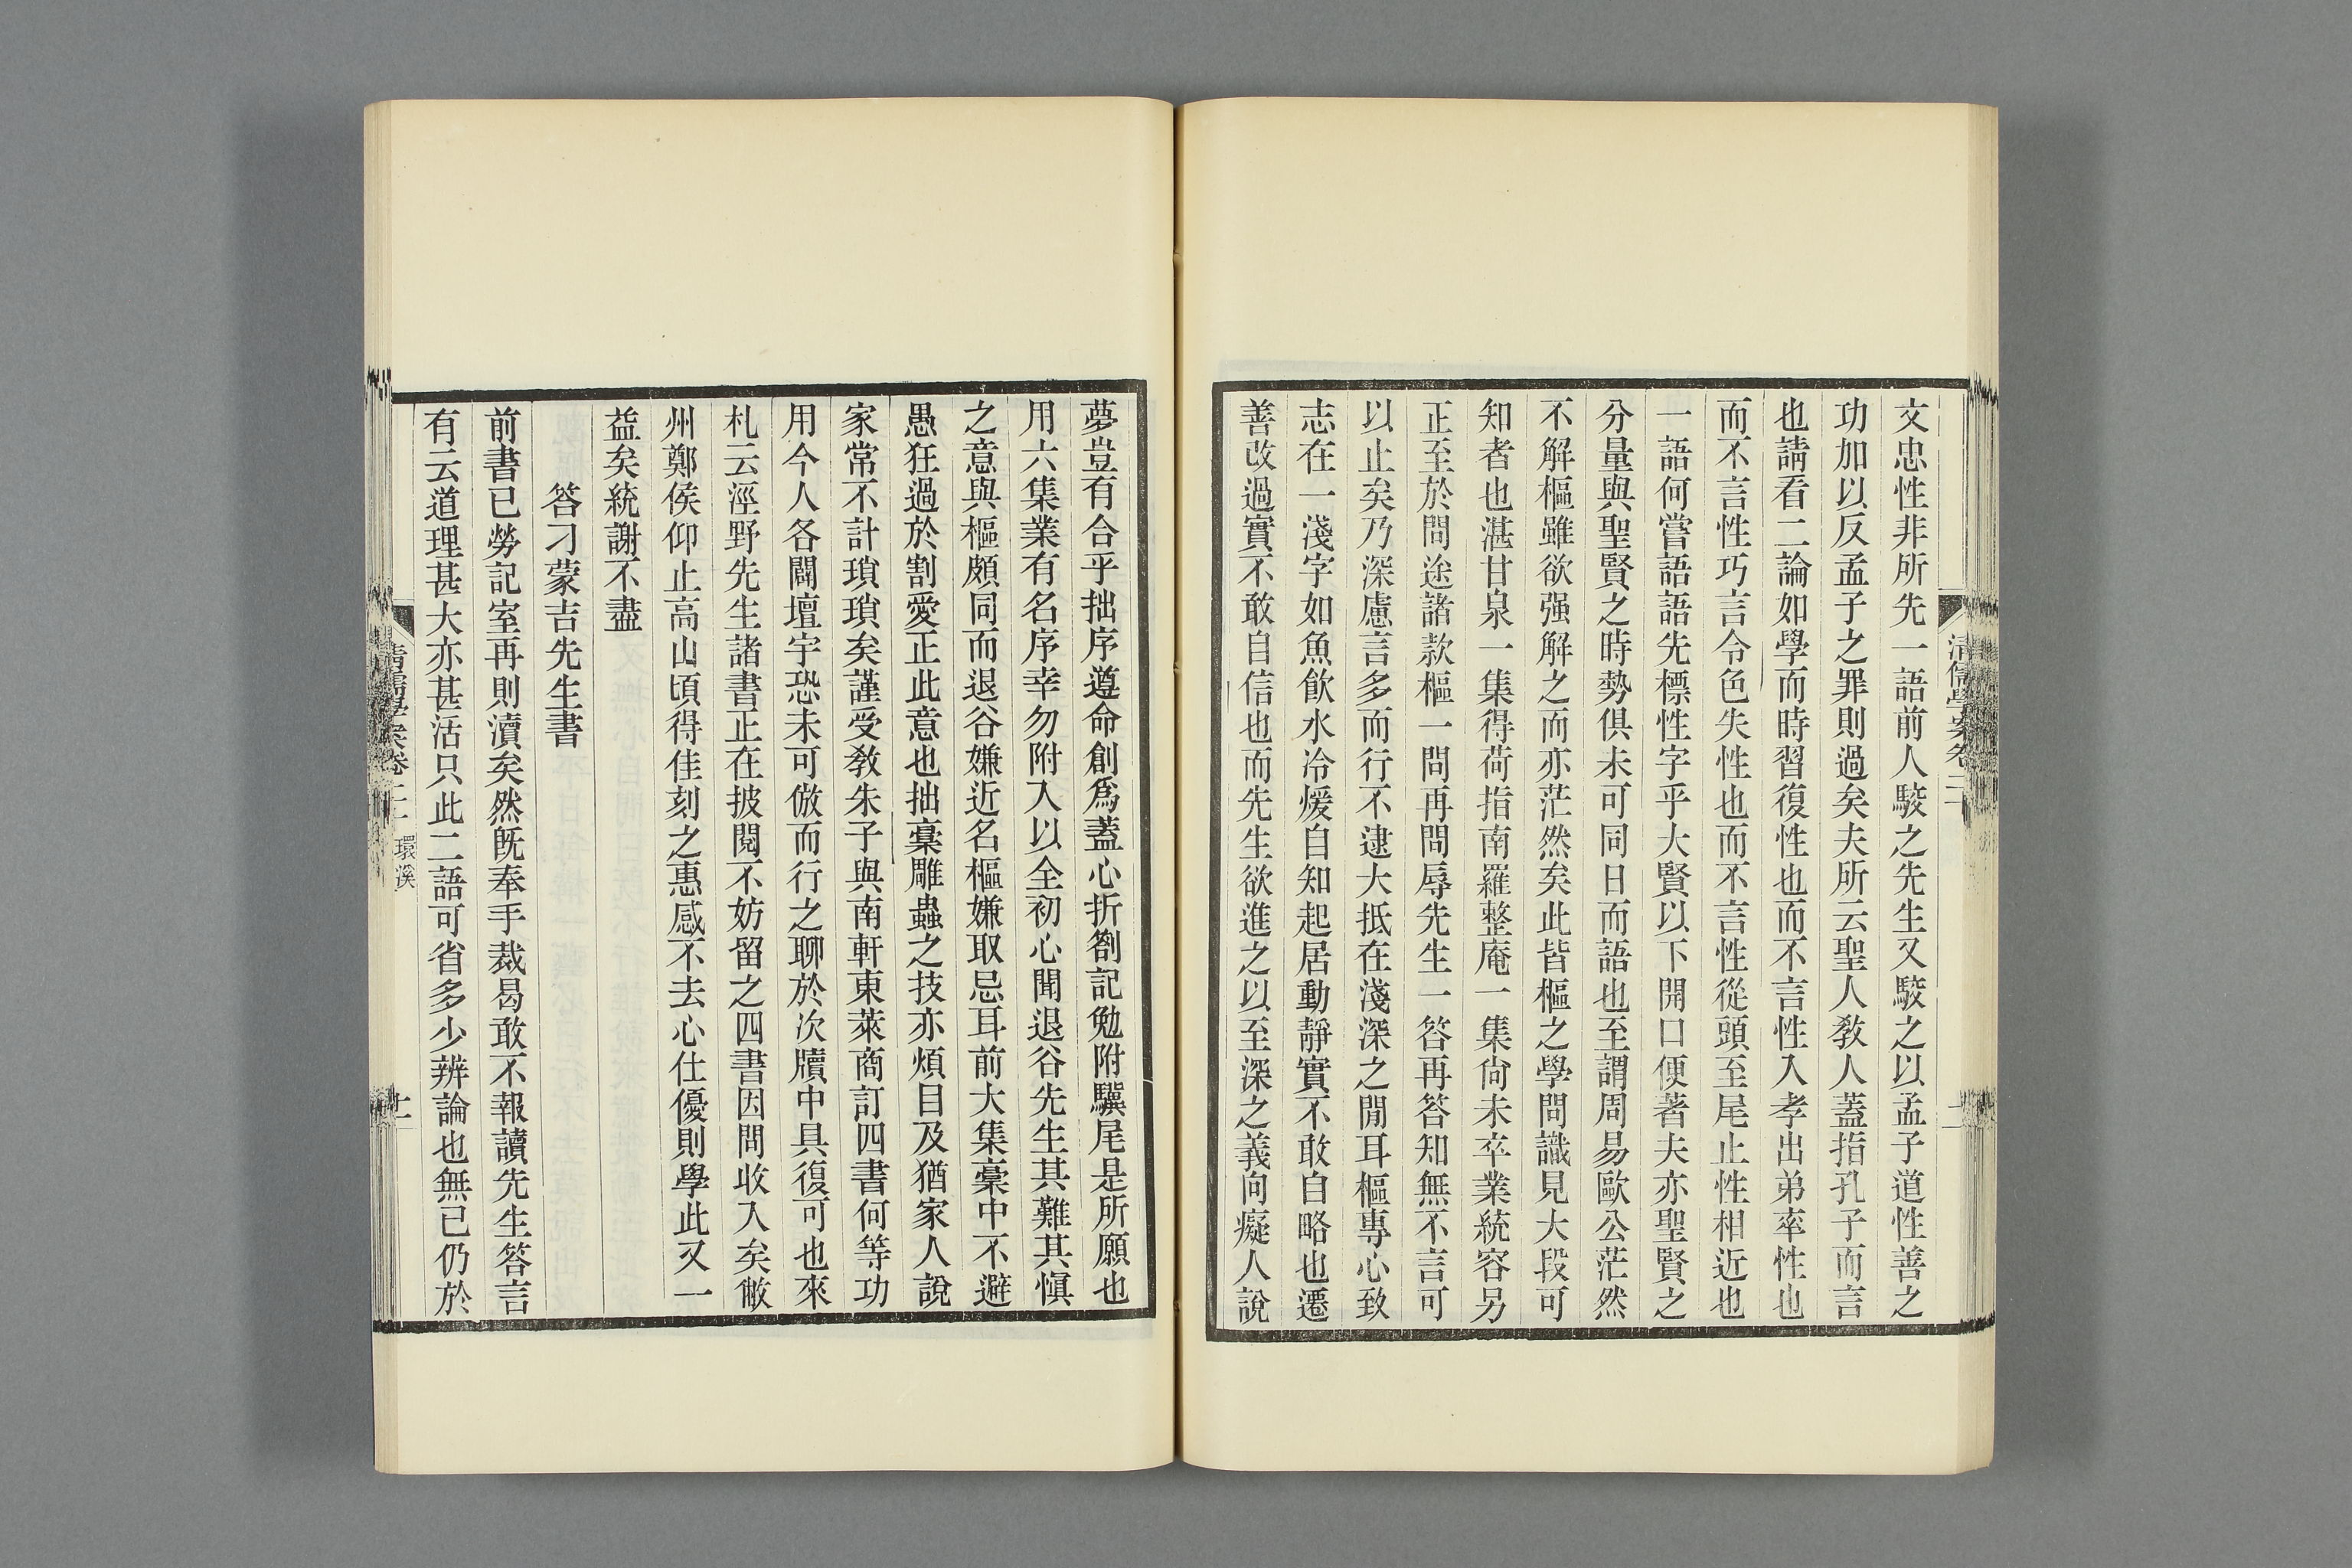 文忠性非所先一語前人駁之先生又駁之以孟子道性善之
功加以反孟子之罪則過矣夫所云聖人敎人蓋指孔子而言
也請看二論如學而時習復性也而不言性入孝出弟率性也
而不言性巧言令色失性也而不言性從頭至尾止性相近也
一語何嘗語語先標性字乎大賢以下開口便著夫亦聖賢之
分量與聖賢之時勢俱未可同日而語也至謂周易歐公茫然
不解樞雖欲强解之而亦茫然矣此皆樞之學問識見大段可
知者也湛甘泉一集得荷指南羅整庵一集尙未卒業統容另
正至於問途諸款樞一問再問辱先生一答再答知無不言可
以止矣乃深慮言多而行不逮大抵在淺深之閒耳樞專心致
志在一淺字如魚飮水冷煖自知起居動靜實不敢自略也遷
善改過實不敢自信也而先生欲進之以至深之義向癡人說
夢豈有合乎拙序遵命創爲蓋心折劄記勉附驥尾是所願也
用六集業有名序幸勿附入以全初心聞退谷先生其難其愼
之意與樞頗同而退谷嫌近名樞嫌取忌耳前大集稾中不避
愚狂過於割愛正此意也拙稾雕蟲之技亦煩目及猶家人說
家常不計瑣瑣矣謹受敎朱子與南軒東萊商訂四書何等功
用今人各闢壇宇恐未可倣而行之聊於次牘中具復可也來
札云涇野先生諸書正在披閱不妨留之四書因問收入矣敝
州鄭侯仰止高山頃得佳刻之惠感不去心仕優則學此又一
益矣統謝不盡
答刁蒙吉先生書
前書已勞記室再則瀆矣然旣奉手裁曷敢不報讀先生答言
有云道理甚大亦甚活只此二語可省多少辨論也無已仍於
清儒學案卷二十 環溪
十一